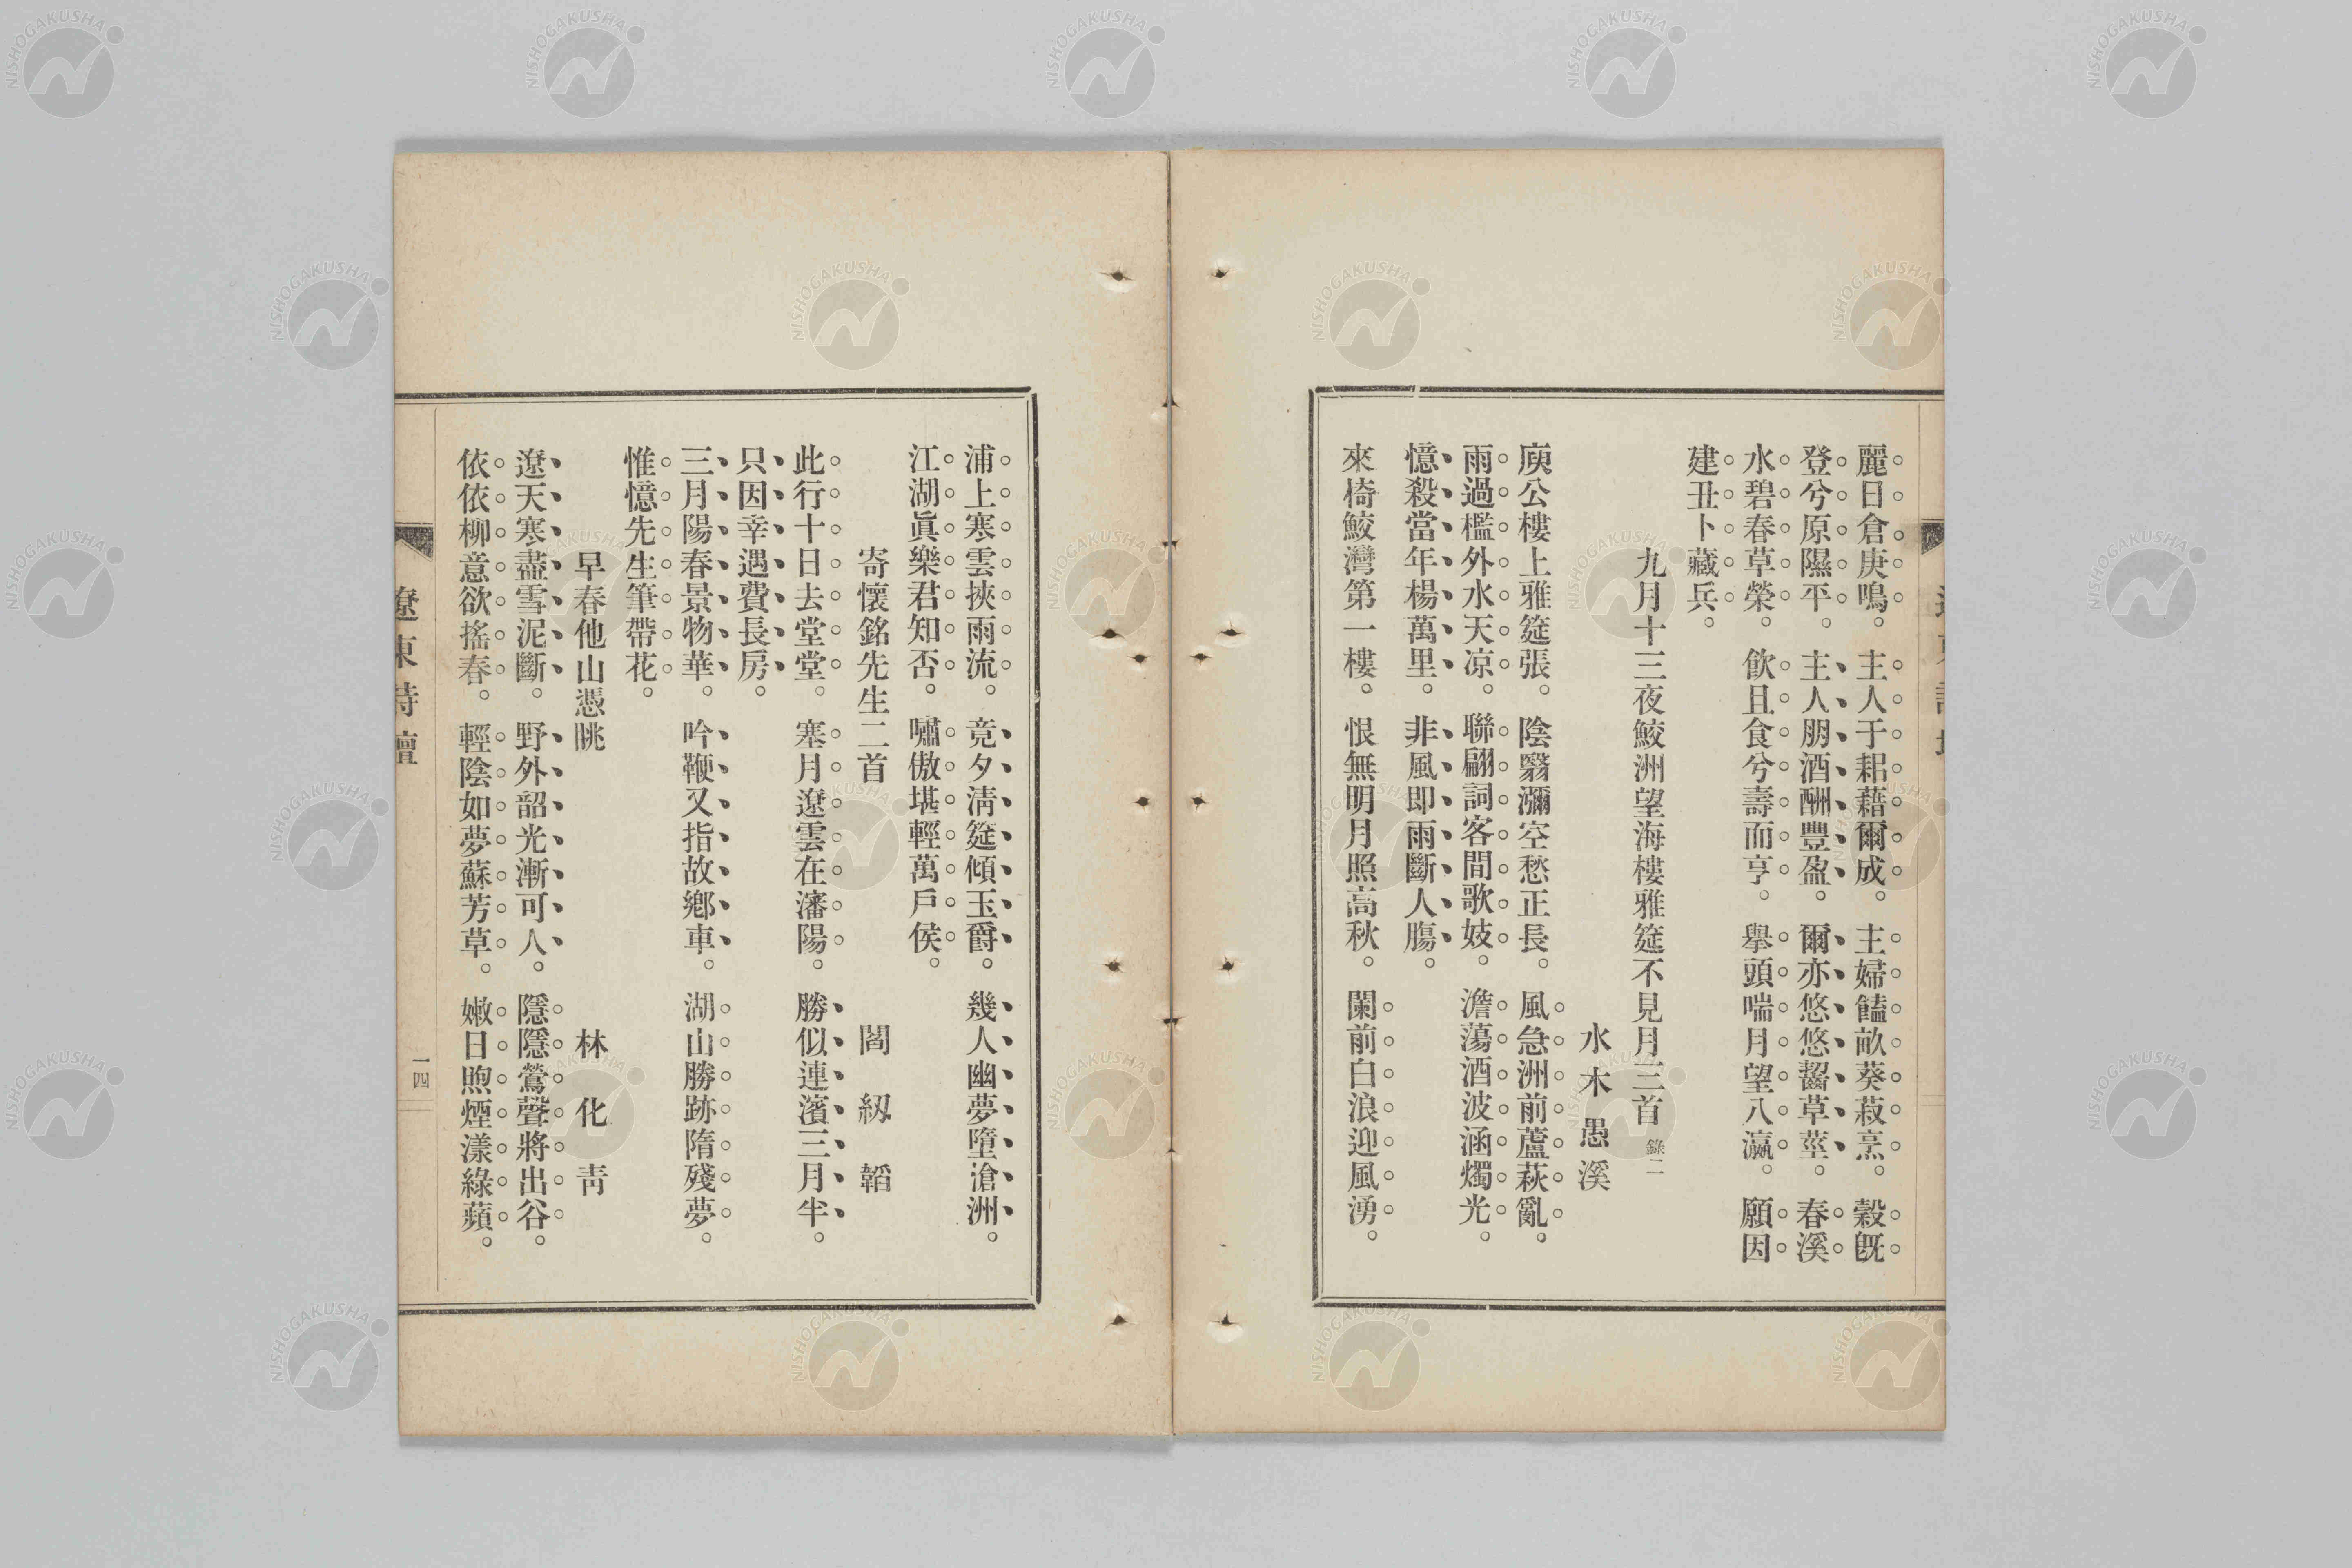 麗日倉庚鳴。主人于耜藉爾成。主婦饁畝葵菽烹。穀旣
登兮原隰平。主人朋酒酬豐盈。爾亦悠悠齧草莖。春溪
水碧春草榮。飮且食兮壽而亨。擧頭喘月望八瀛。願因
建丑卜藏兵。
九月十三夜鮫洲望海樓雅筵不見月三首 錄二
水木愚溪
庾公樓上雅筵張。陰翳瀰空愁正長。風急洲前蘆萩亂。
雨過檻外水天凉。聯翩詞客間歌妓。澹蕩酒波涵燭光。
憶殺當年楊萬里。非風即雨斷人膓。
來椅鮫灣第一樓。恨無明月照高秋。闌前白浪迎風湧。
浦上寒雲挾雨流。竟夕淸筵傾玉爵。幾人幽夢墮滄洲。
江湖眞樂君知否。嘯傲堪輕萬戶侯。
寄懷銘先生二首
閻紉韜
此行十日去堂堂。塞月遼雲在瀋陽。勝似連濱三月半。
只因幸遇費長房。
三月陽春景物華。吟鞭又指故鄕車。湖山勝跡隋殘夢。
惟憶先生筆帶花。
早春他山憑眺
林化靑
遼天寒盡雪泥斷。野外韶光漸可人。隱隱鶯聲將出谷。
依依柳意欲搖春。輕陰如夢蘇芳草。嫩日煦煙漾綠蘋。
遼東詩壇
一四
NISHOGAKUSHA